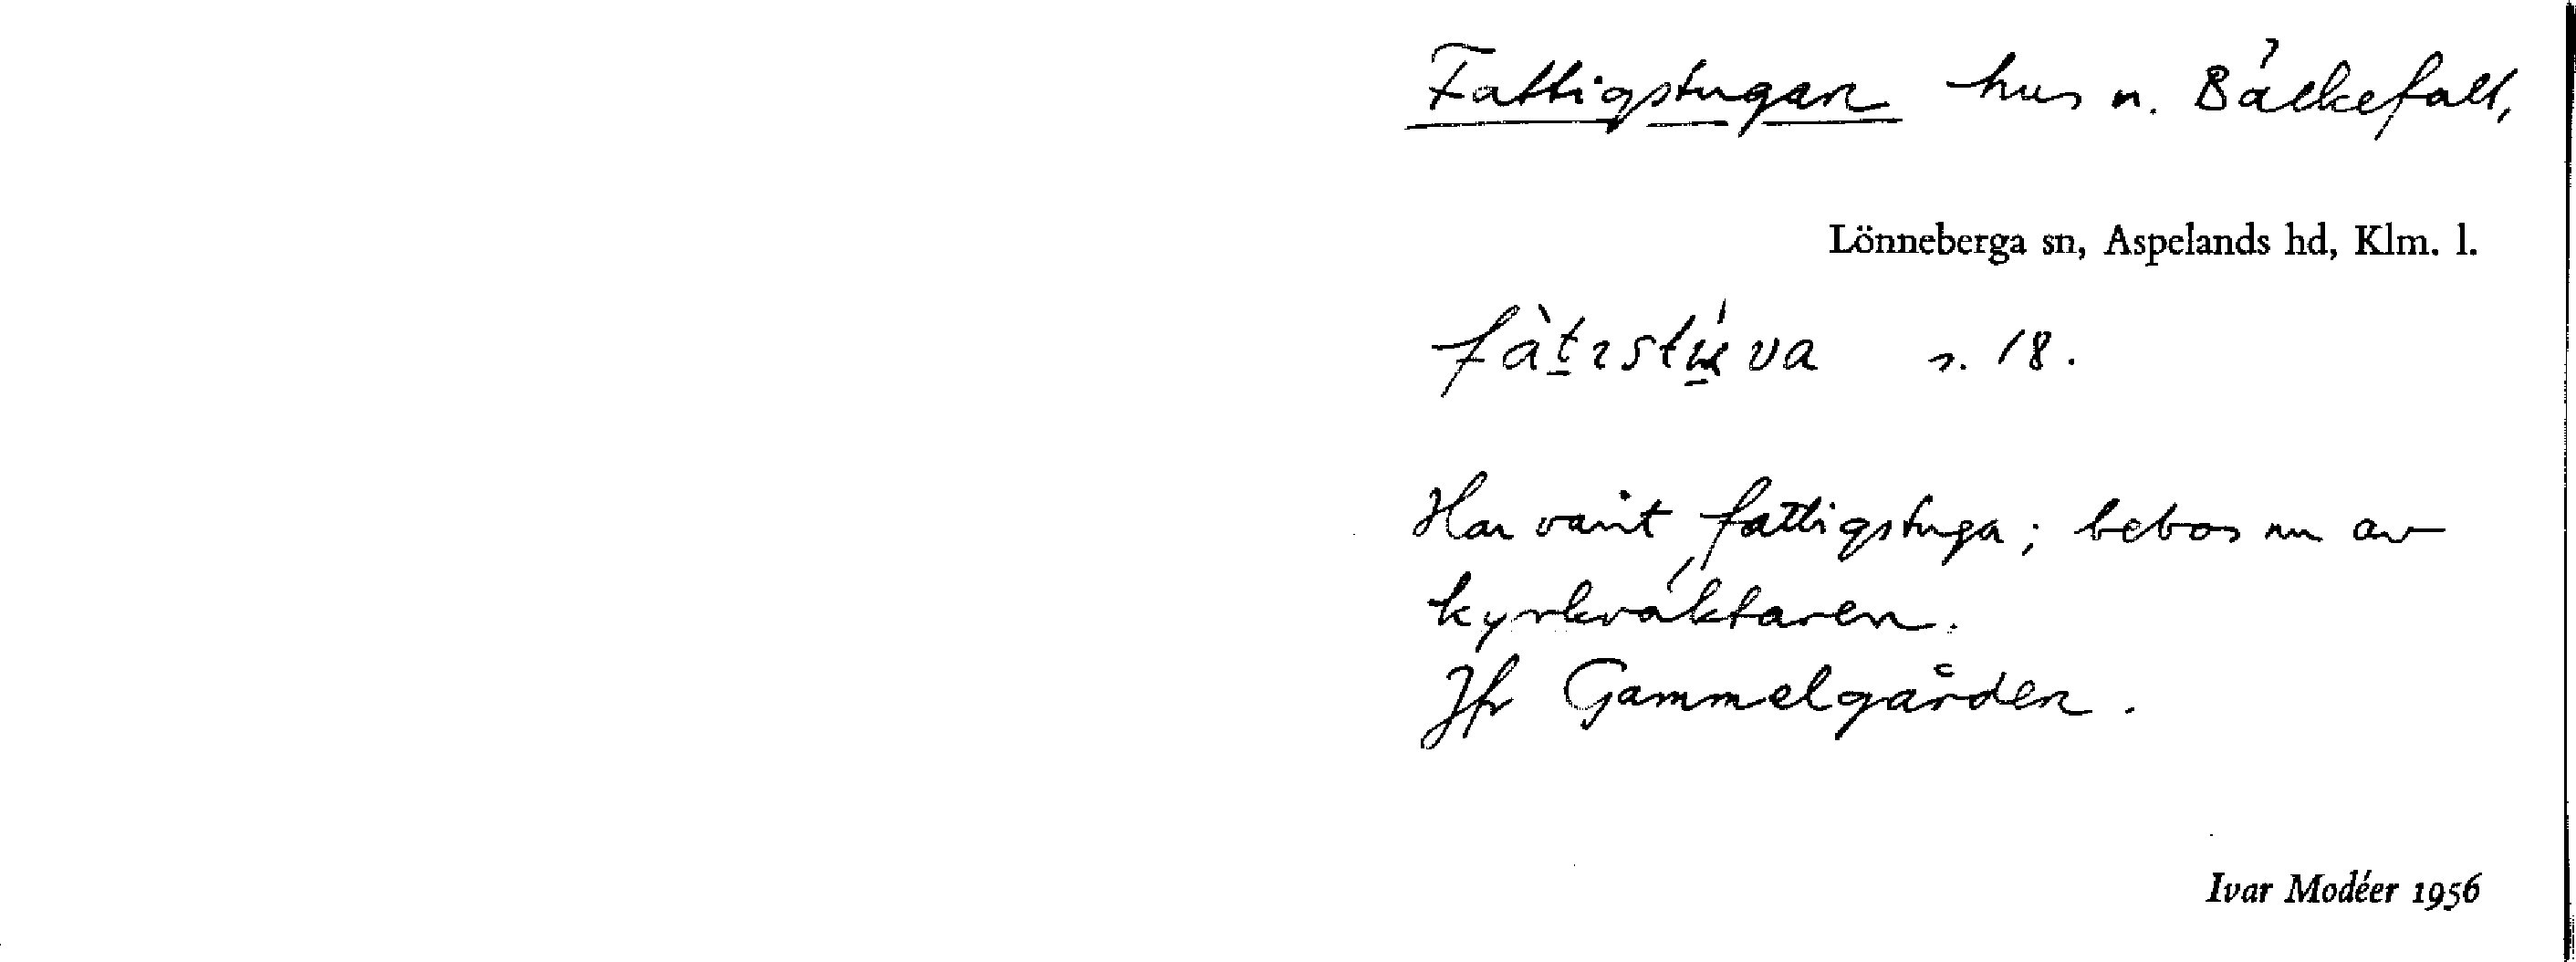 Fattigstugan hus n. Bäckefall,
Lönneberga sn, Aspelands hd, Klm. l.
fàt̲ɩstú̲va s. 18.
Har varit fattigstuga; bebos nu av
kyrkväktaren.
Jfr Gammelgården.
Ivar Modéer 1956